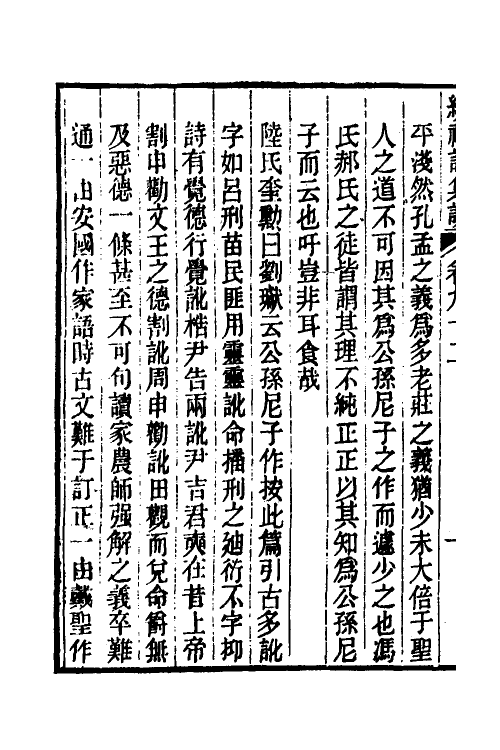 續禮記集說 卷九十二 一
平淺然孔孟之義爲多老莊之義猶少未大倍于聖
人之道不可因其爲公孫尼子之作而遽少之也馮
氏郝氏之徒皆謂其理不純正正以其知爲公孫尼
子而云也吁豈非耳食哉
陸氏奎勲曰劉瓛云公孫尼子作按此篇引古多訛
字如呂刑苗民匪用靈靈訛命播刑之廸衍不字抑
詩有覺德行覺訛梏尹告兩訛尹吉君奭在昔上帝
割申勸文王之德割訛周申勸訛田觀而兌命爵無
及惡德一條甚至不可句讀家農師强解之義卒難
通一由安國作家語時古文難于訂正一由戴聖作